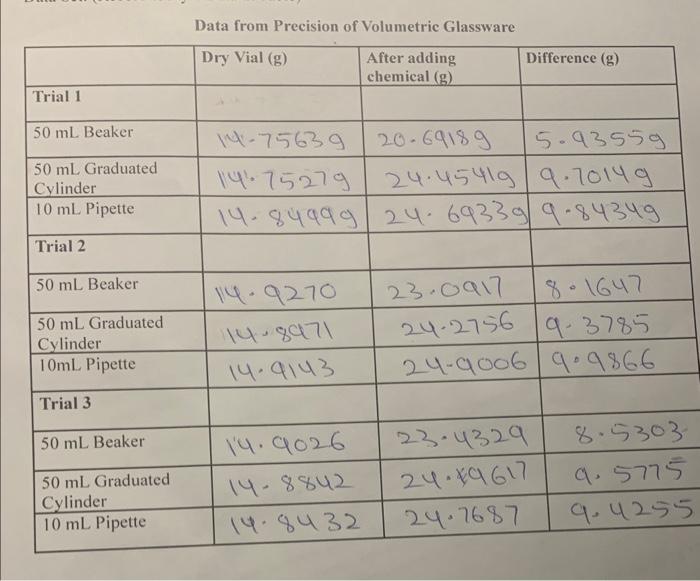 Data from Precision of Volumetric Glassware
Dry Vial (g) After adding chemical (g) Difference (g)
Trial 1
50 mL Beaker 14.7563g 20.6918g 5.9355g
50 mL Graduated Cylinder 14.7527g 24.4541g 9.7014g
10 mL Pipette 14.8499g 24.6933g 9.8434g
Trial 2
50 mL Beaker 14.9270 23.0917 8.1647
50 mL Graduated Cylinder 14.8971 24.2756 9.3785
10mL Pipette 14.9143 24.9006 9.9866
Trial 3
50 mL Beaker 14.9026 23.4329 8.5303
50 mL Graduated Cylinder 14.8842 24. 9.5775
10 mL Pipette 14.8432 24.7687 9.4255